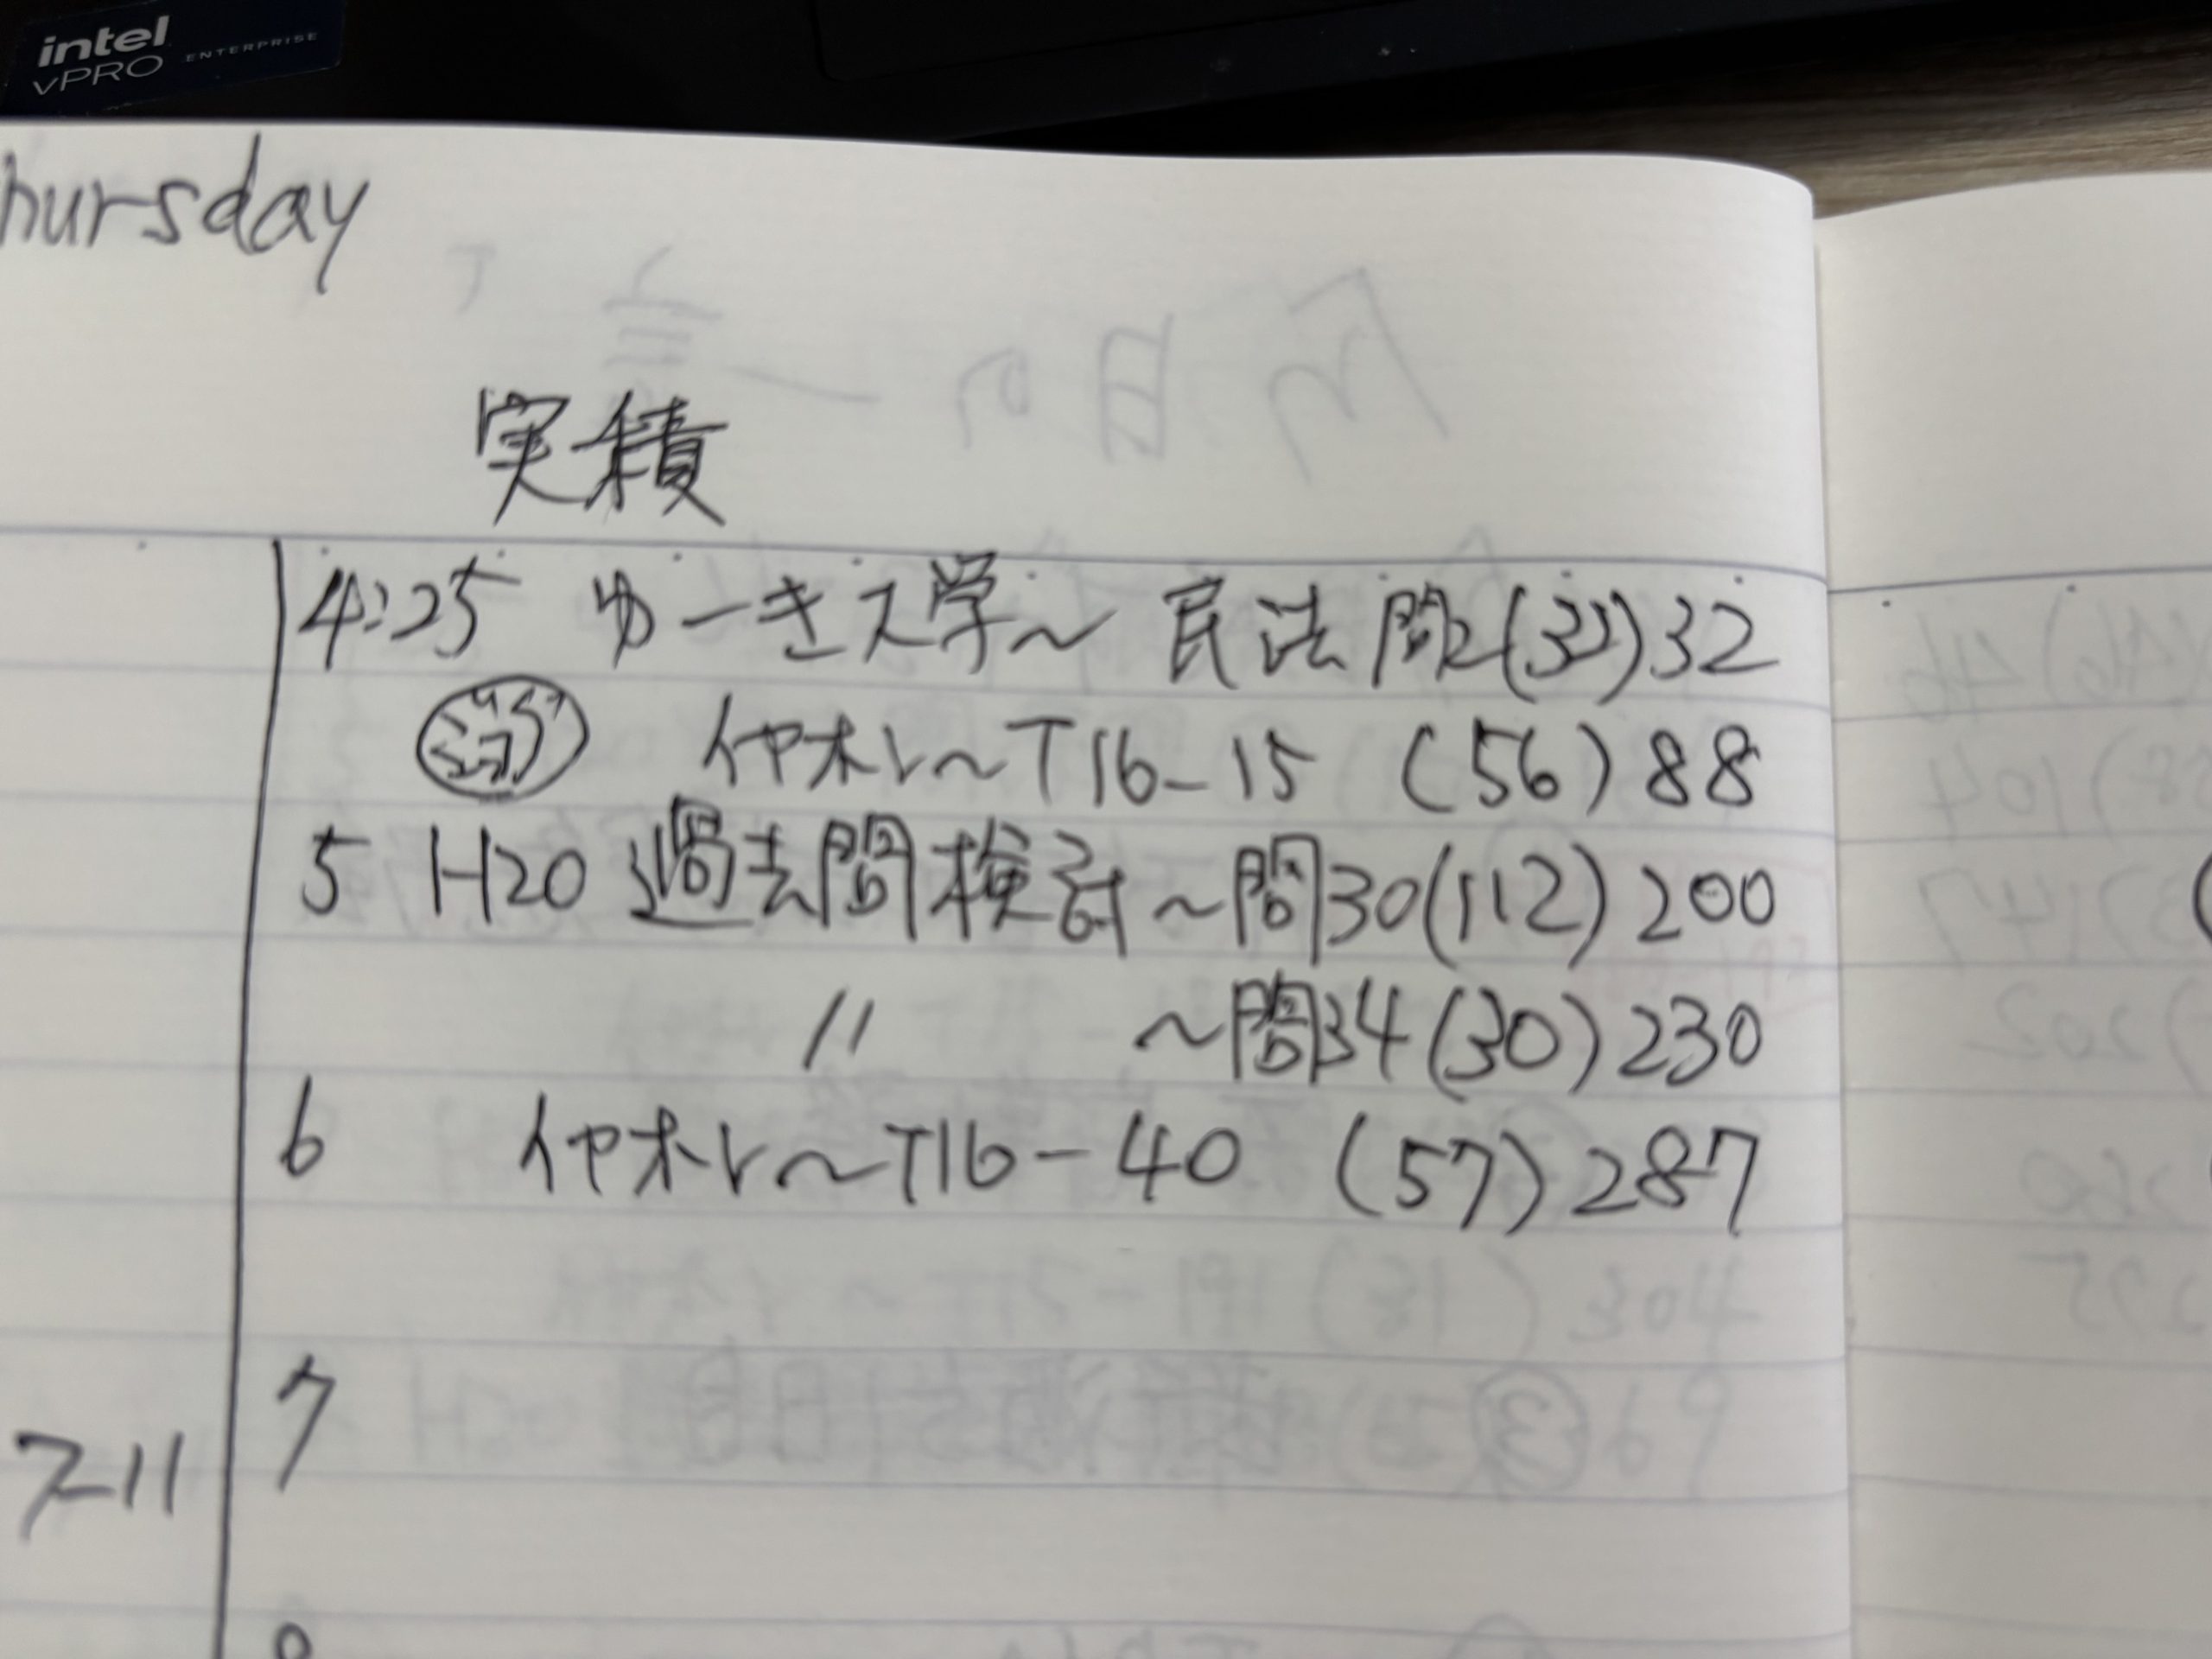 intel
vPRO ENTERPRISE
hursday
実積
4:25 ゆーき大学〜 民法問2(32)32
イヤホレ〜T16-15 (56)88
5 H20 過去問検討〜問30(112)200
〃 〜問34(30)230
6 イヤホレ〜T16-40 (57)287
7
7-11